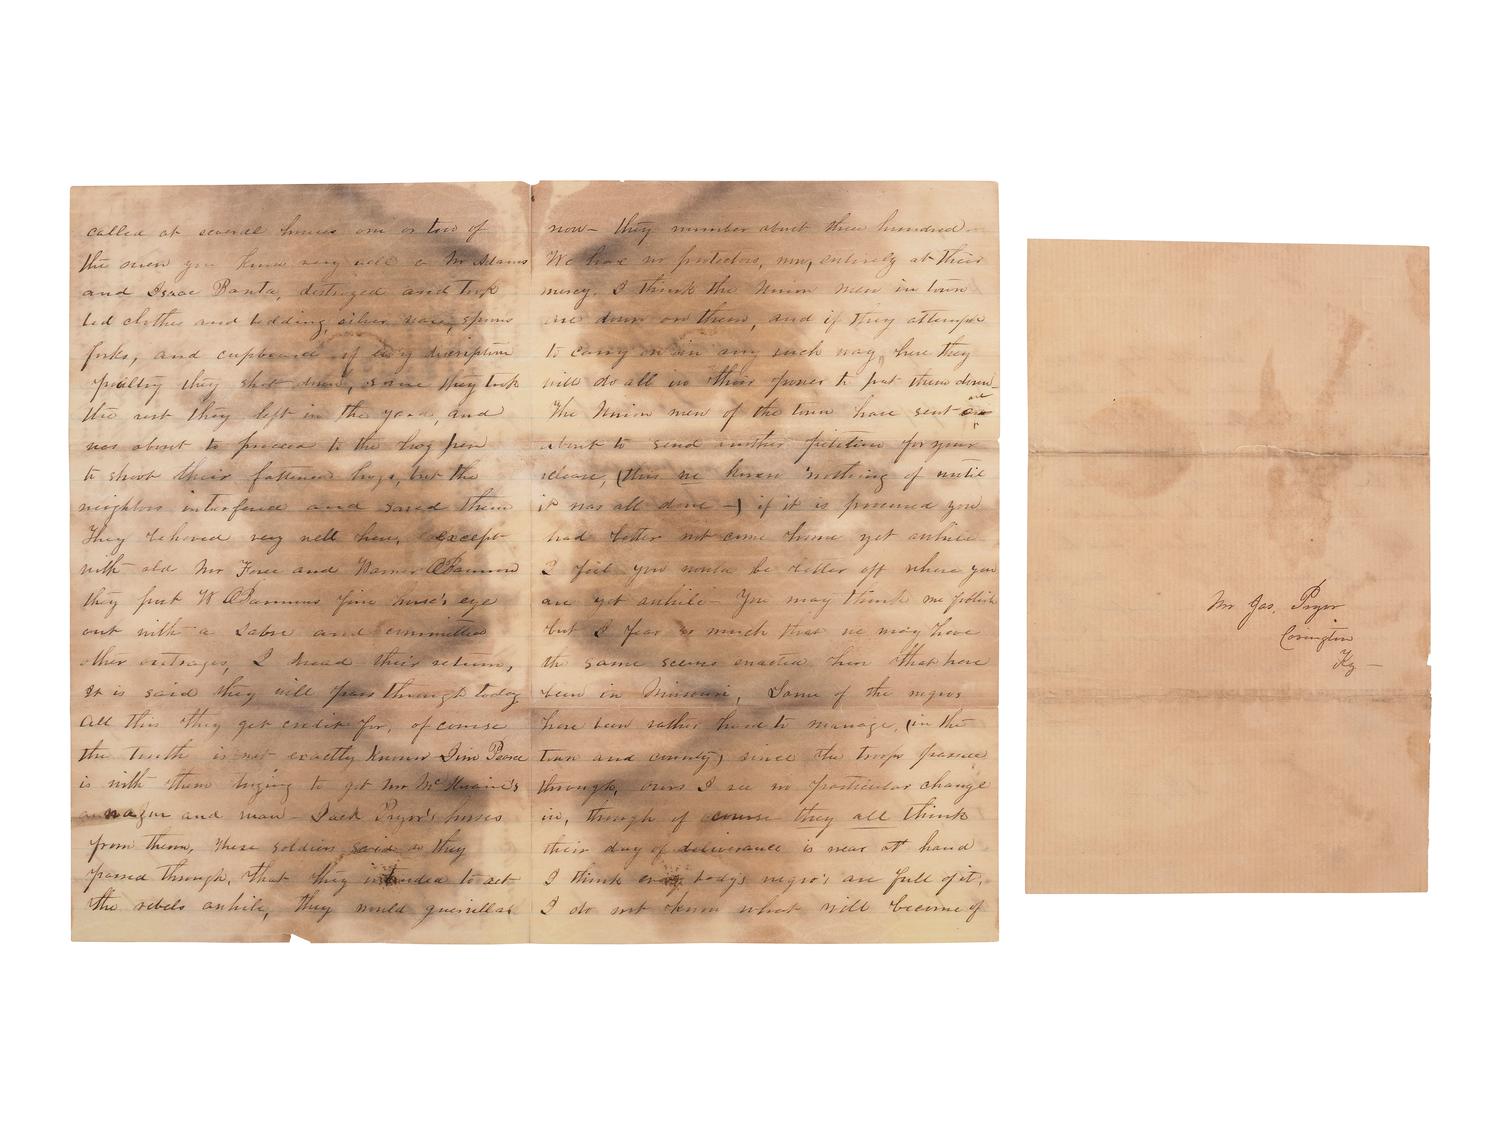 called at several houses one or two of
the men you know very well a Mr Adams
and Isaac Banta, destroyed and took
bed clothes and bedding, silver ware, spoons
forks, and cupboard of every discription
poultry they shot down, some they took
the rest they left in the yard, and
was about to proceed to the hog pen
to shoot their fattened hogs, but the
neighbors interfered and saved them
They behaved very well here, except
with old Mr Force and Warner
they put W fine horse's eye
out with a sabre and committed
other outrages, I dread their return,
It is said they will pass through today
All this they get credit for, of course
the truth is not exactly known Jim Pearce
is with them trying to get Mr
and man - Jack Pryor's horses
from them, These soldiers said as they
passed through, that they intended to act
the rebels awhile, they would guerillas
now - they number about three hundred
We have no protectors, now, entirely at their
mercy. I think the Union men in town
are down on them, and if they attempt
to carry on in any such way, here they
will do all in their power to put them down
The Union men of the town have sent or are
about to send another petition for your
release, (this we knew nothing of until
it was all done -) if it is procured you
had better not come home yet awhile
I feel you would be better off where you
are yet awhile - You may think me foolish
but I fear so much that we may have
the same scenes enacted here that have
been in Missouri, Some of the negros
have been rather hard to manage, (in the
town and county) since the troops passed
through, ours I see no particular change
in, though of course they all think
their day of deliverance is near at hand
I think every body's negro's are full of it,
I do not know what will become of
Mr Jas. Pryor
Covington
Ky -